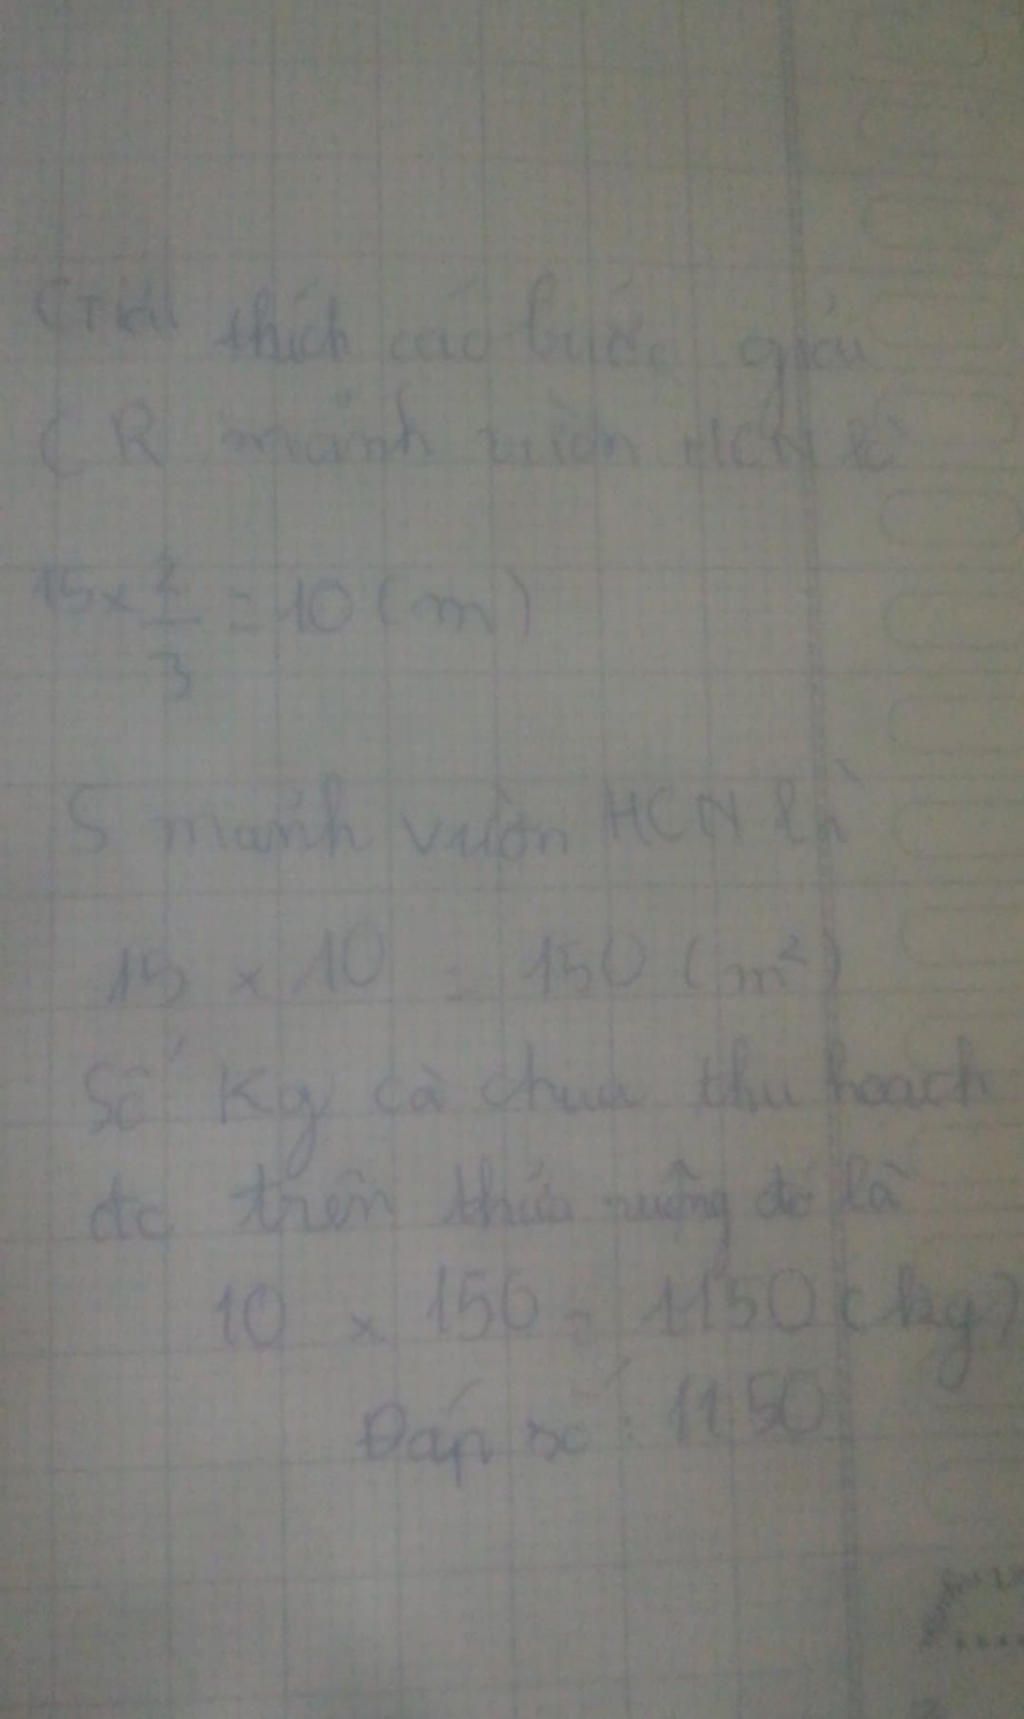 Giải thích các bước giải
CR mảnh vườn HCN là
15 x 2/3 = 10 (m)
S mảnh vườn HCN là
15 x 10 = 150 (m²)
Số Kg cà chua thu hoạch
đc trên thửa ruộng đó là
10 x 150 = 1150 (kg)
Đáp số : 1150